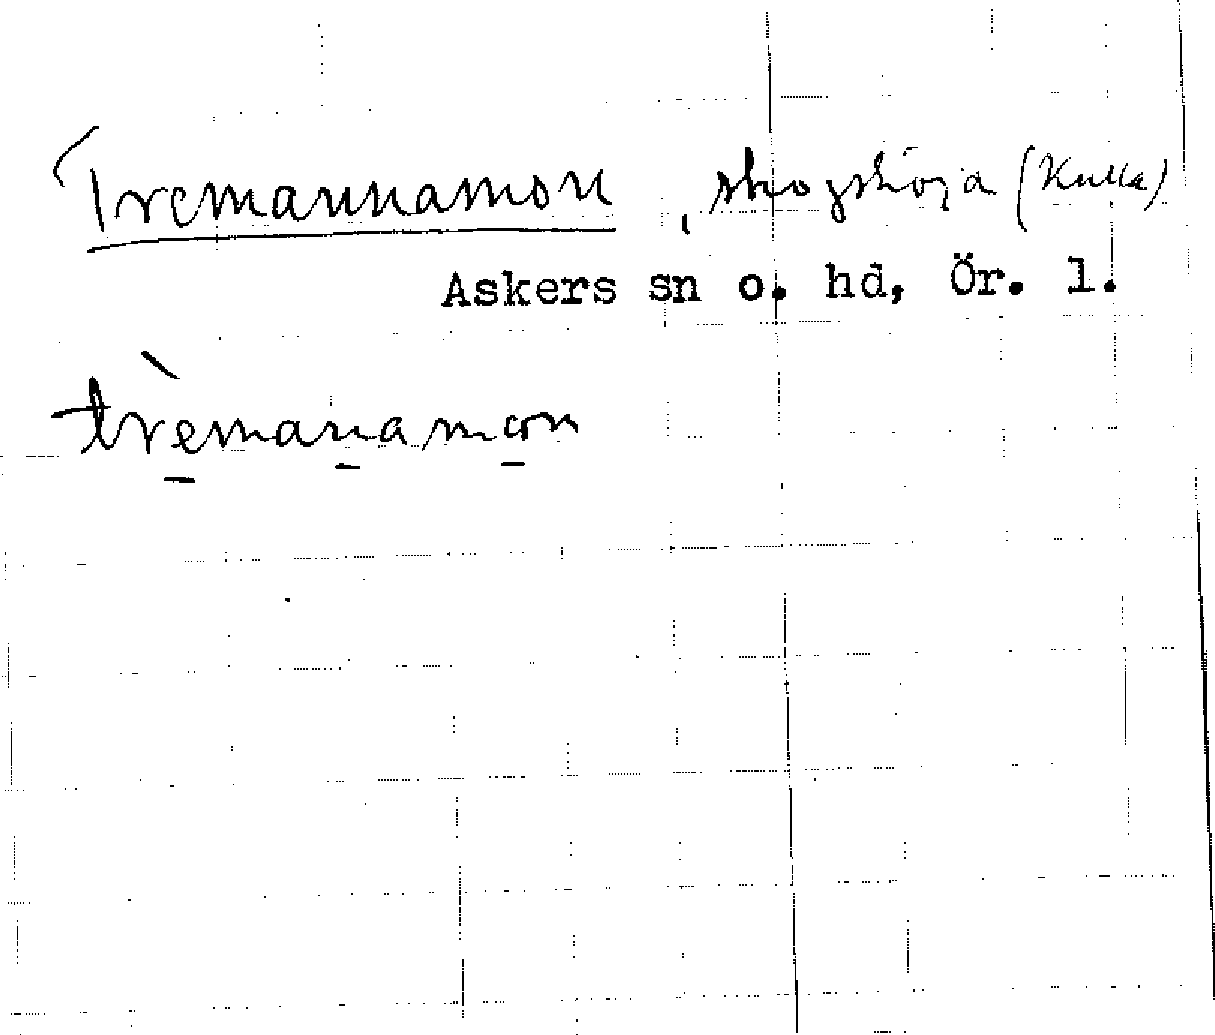 Tremannamon, skogshöja (Kulla)
Askers sn o. hd, Ör. l.
trèmanamon